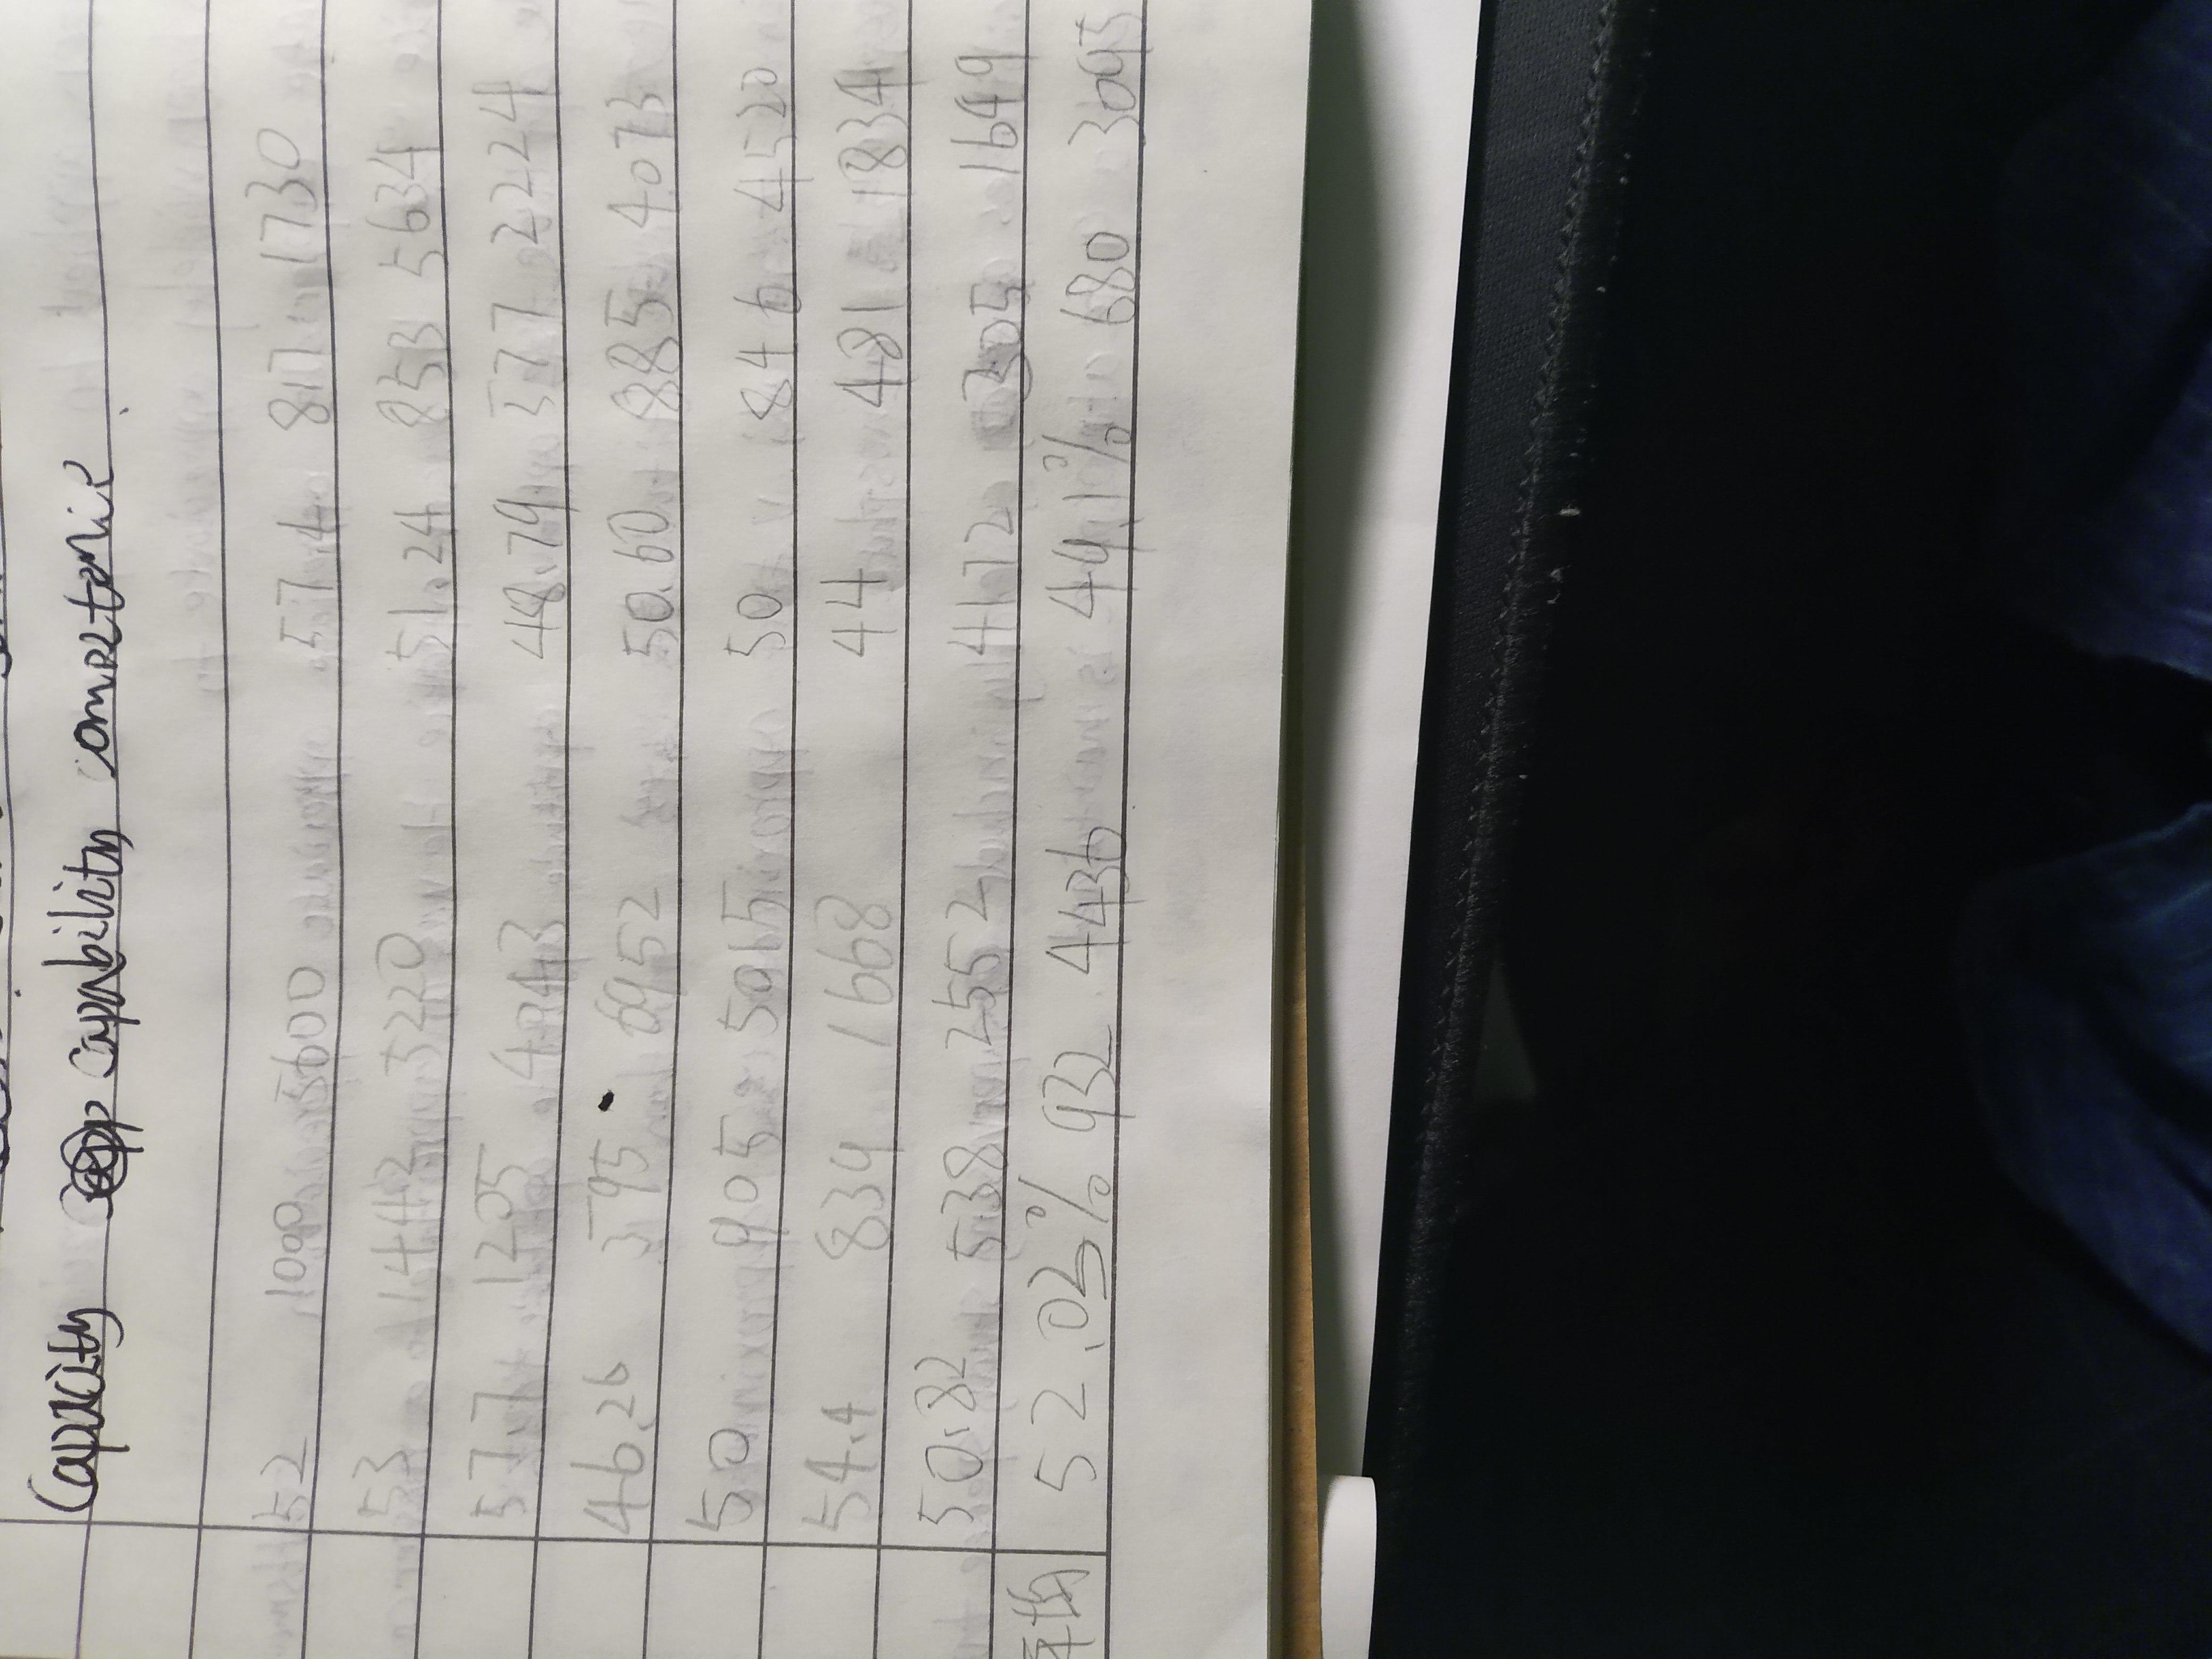 Capacity Capability
52 1000 5600 57.4 817 1730
53 1442 3220 51.24 853 5634
57.7 1205 4043 48.79 577 2224
46.26 595 6952 50.60 885 4073
50 905 5015 50 846 4520
54.4 834 1668 44 481 1834
50.82 538 2552 41.72 305 1649
平均 52.03% 932 4436 49.1% 680 3095